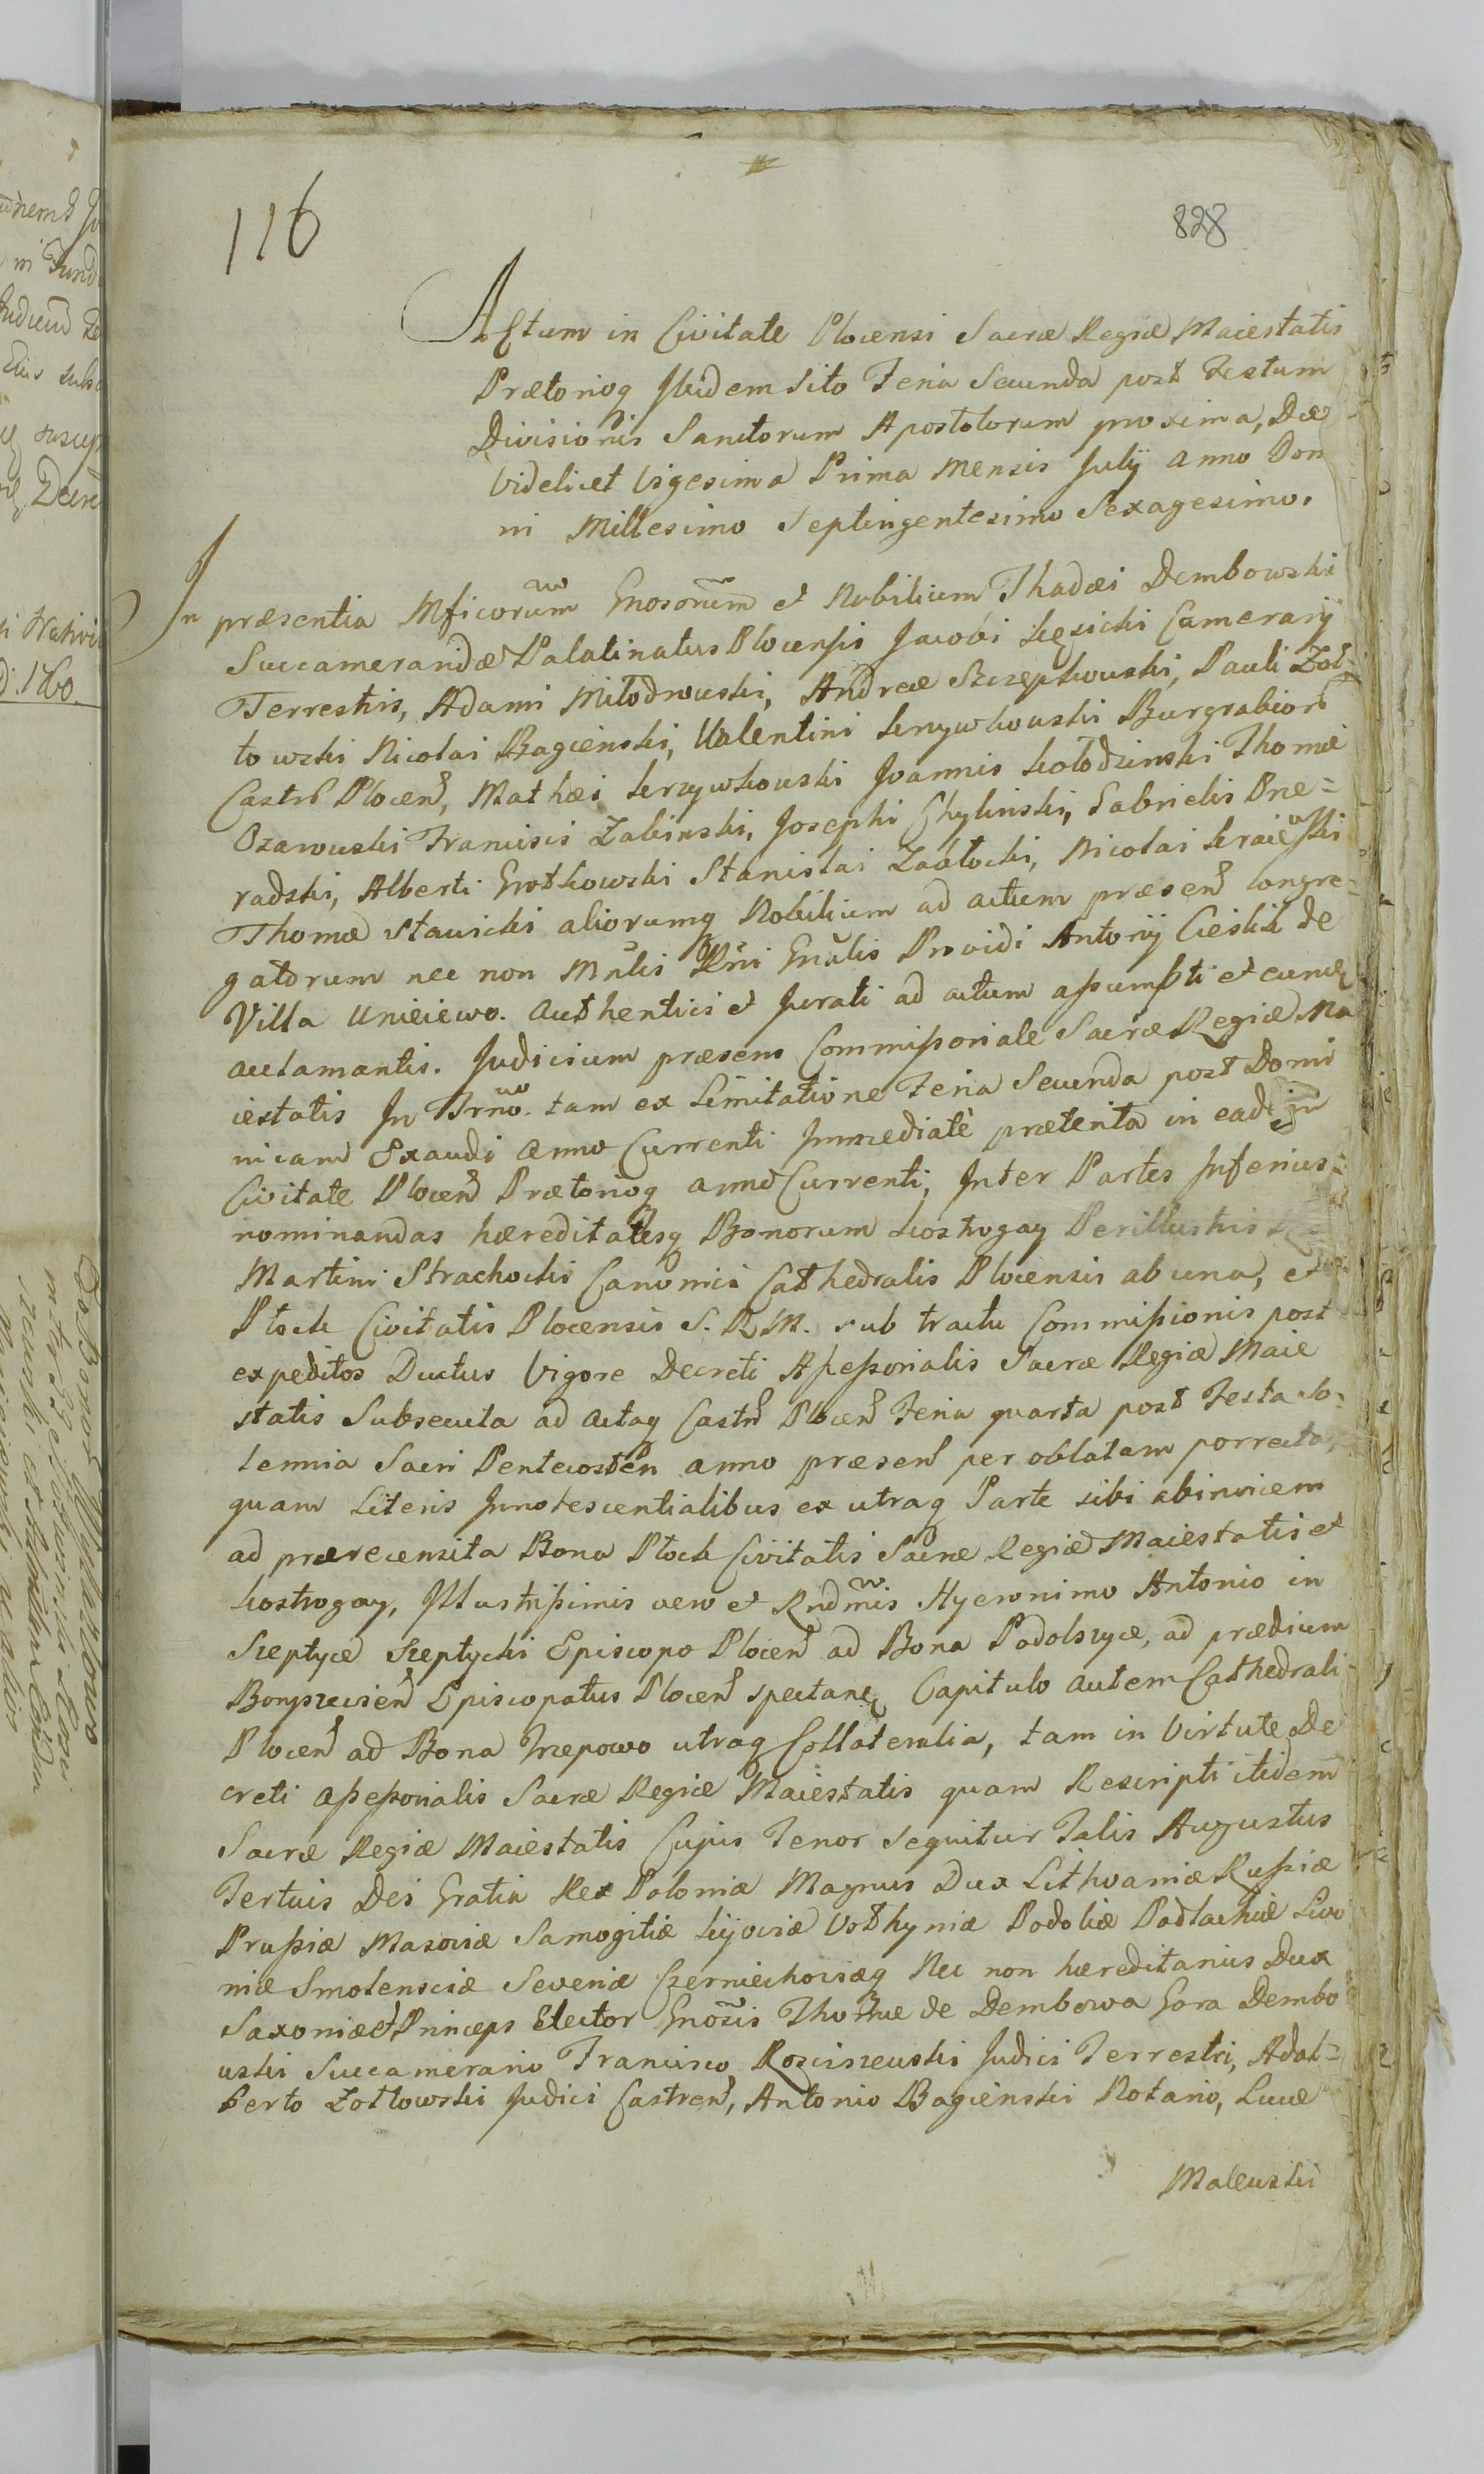 116
828
Actum in Civitate Plocensi Sacræ Regiæ Maiestatis
Prætorioq Ibidem sito Feria Secunda post Festum
Divisionis Sanctorum Apostolorum proxima, Die
Videlicet Vigesima Prima Mensis Julÿ Anno Don
ni Millesimo Septingentesimo Sexagesimo.
In præsentia Mficorum Gnosorum et Nobilium Thadæi Dembowski
Succamerandæ Palatinatus Plocensis Jacobi Camerarÿ
Terrestris, Adami Miłodrowski, Andreæ Szczepkowski, Pauli Żoł-
towski Nicolai Bagienski, Valentini Krzywkowski Burgrabior
Castr Plocen, Mathæi Krzywkowski Joannis Kołodzinski Thomæ
Ozarowski Francisci Zabinski, Josephi Chylinski, Gabrielis Prze-
radzki, Alberti Grotkowski Stanislai Zabłocki, Nicolai Kraiewski
Thomæ Stawicki aliorumq Nobilium ad actum præsen Congre-
gatorum nec non Mnlis Rni Gnalis Providi Antonÿ Cieslik de
Villa Unieiewo. Authentici et Jurati ad actum assumpti et eunq
aclamantis. Judicium præsens Commissoriale Sacræ Regiæ Ma
iestatis In Trno. tam ex Limitatione Feria Secunda post Domi
nicam Exaudi Anno Currenti Immediatè prætenta in eadem
Civitate Plocen Prætorioq anno Currenti, Inter Partes Inferius
nominandas hæreditatesq Bonorum Kostrogay Perillustris
Martini Strachocki Canonici Cathedralis Plocensis ab una, et
Płock Civitatis Plocensis S. R. M. sub tractu Commissionis post
expeditos Ductus Vigore Decreti Assessorialis Sacræ Regiæ Maie
statis Subsecuta ad Actaq Castr Plocen Feria quarta post Festa So-
lennia Sacri Pentecosten anno præsen per oblatam porrecta,
quam Literis Innotescentialibus ex utraq Parte sibi abinvicem
ad præcensita Bona Płock Civitatis Sacræ Regiæ Maiestatis et
Kostrogay, Illustrissimis vero et Rndmis Hyeronimo Antonio in
Szeptyce Szeptycki Episcopo Plocen ad Bona Podolszyce, ad prædium
Boryszewien Episcopatus Plocen spectanq Capitulo autem Cathedrali
Plocen ad Bona Trzepowo utraq Collateralia, tam in Virtute De
creti Assessorialis Sacræ Regiæ Maiestatis quam Rescripti itidem
Sacræ Regiæ Maiestatis Cujus Tenor sequitur Talis Augustus
Tertuis Dei Gratia Rex Poloniæ Magnus Dux Lithvaniæ Russiæ
Prussiæ Masoviæ Samogitiæ Kijoviæ Vołhyniæ Podoliæ Podlachiæ Livo
niæ Smolensciæ Severiæ Czerniechoviæq Nec non hæreditarius Dux
Saxoniæ et Princeps Elector Gnosis Thomæ de Dembowa Gora Dembo
wski Succamerario Francisco Rosciszewski Judici Terrestri, Adal-
berto Żołtowski Judici Castren, Antonio Bagienski Notario, Lucæ
Malewski